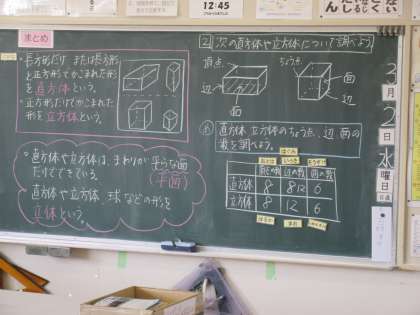 12:45
まとめ
・長方形だけ または長方形
と正方形でかこまれた形
を直方体という。
・正方形だけでかこまれた
形を立方体という。
。直方体や立方体は、まわりが平らな面
(平面)
だけでできている。
直方体や立方体、球などの形を
立体という。
2 次の直方体や立方体について調べよう
頂点
辺
面
ちょう点
面
辺
直方体 立方体のちょう点、辺 面の
数を調べよう。
直方体 8 12 6
立方体 8 12 6
3
月
2
日
水
曜
日